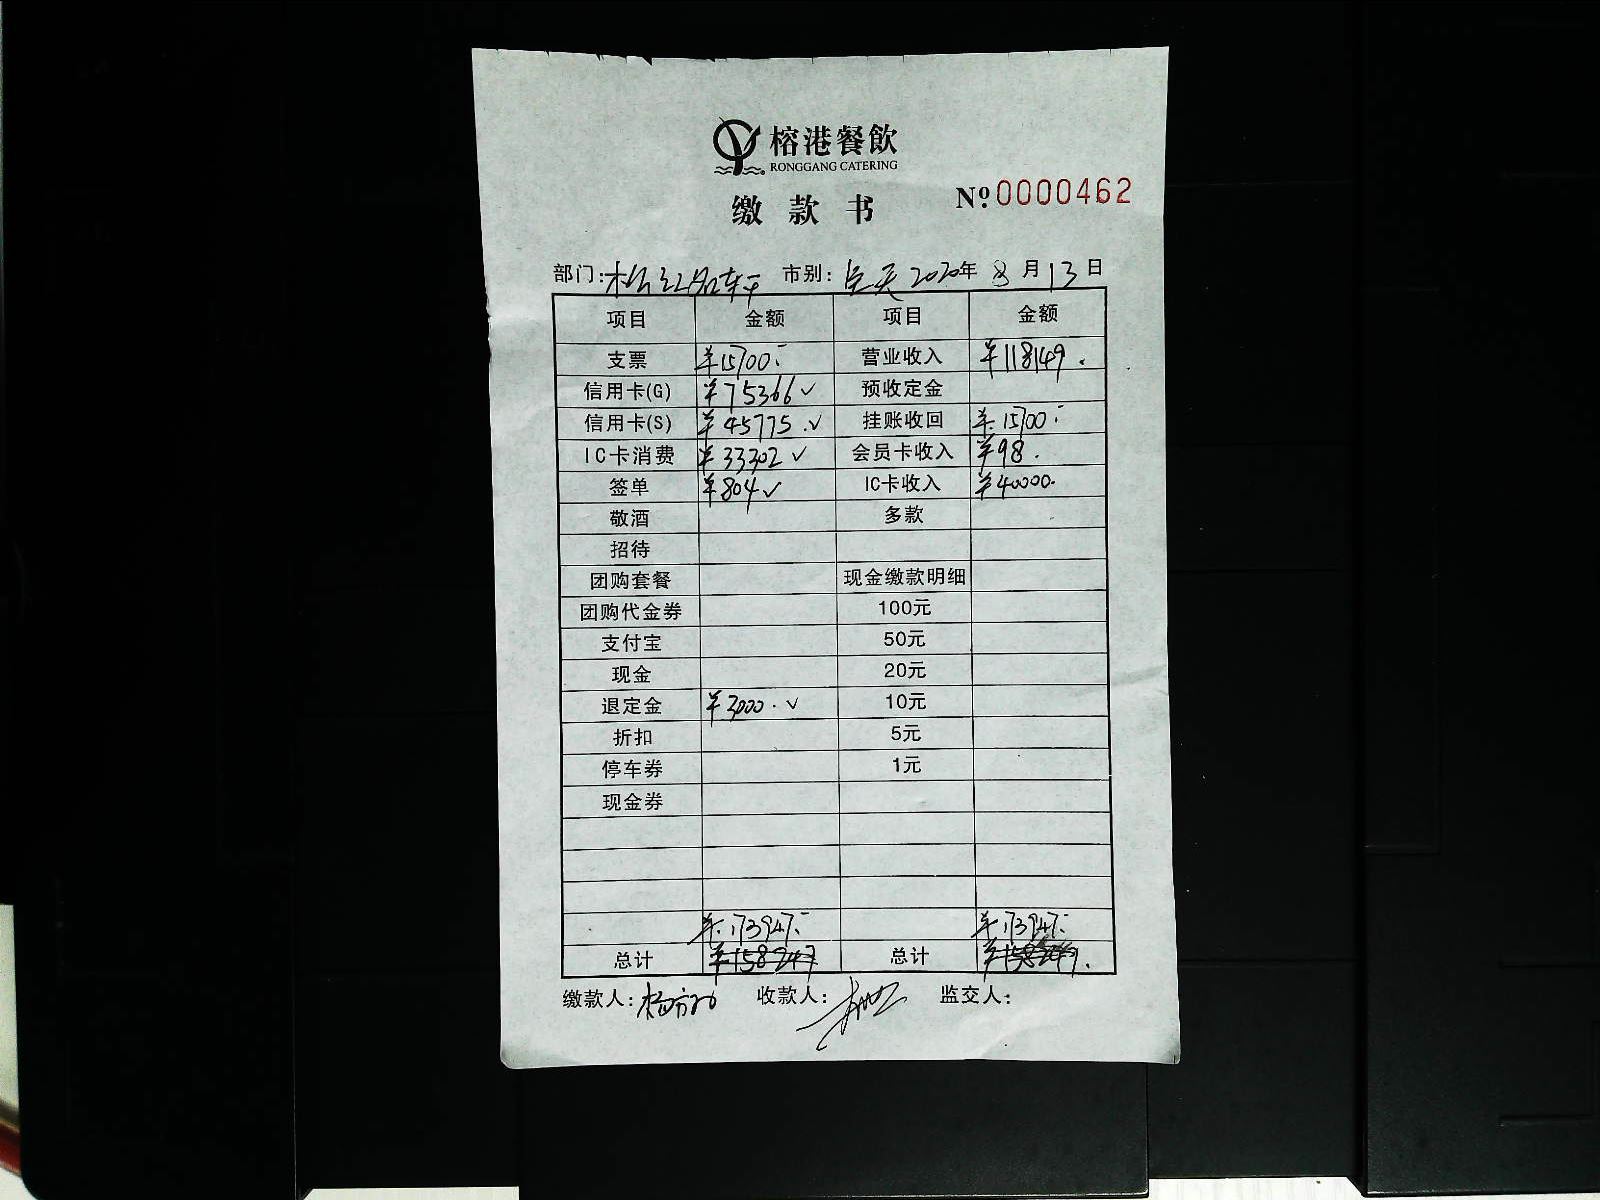 榕港餐飲
RONGGANG CATERING
缴款书 Nº 0000462
部门: 市别: 全天 2020年 8月13日
项目 金额 项目 金额
支票 ¥15700.- 营业收入 ¥118149.
信用卡(G) ¥75366✓ 预收定金
信用卡(S) ¥45775.✓ 挂账收回 ¥15700.-
IC卡消费 ¥33302✓ 会员卡收入 ¥98.
签单 ¥804✓ IC卡收入 ¥40000.
敬酒 多款
招待
团购套餐 现金缴款明细
团购代金券 100元
支付宝 50元
现金 20元
退定金 ¥3000.✓ 10元
折扣 5元
停车券 1元
现金券
¥173947.- ¥173947.-
总计 ¥158247 总计 ¥158247.
缴款人: 收款人: 监交人: